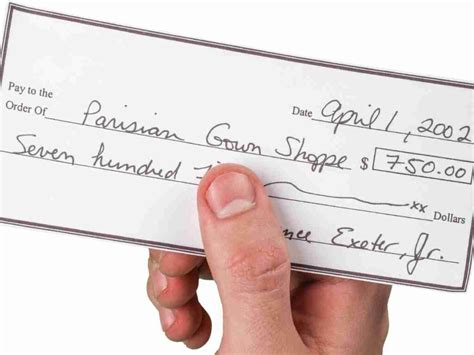 Pay to the
Order Of Parisian Gown Shoppe $ 750.00
Date April 1, 2002
Seven hundred xx Dollars
Exeter, Jr.